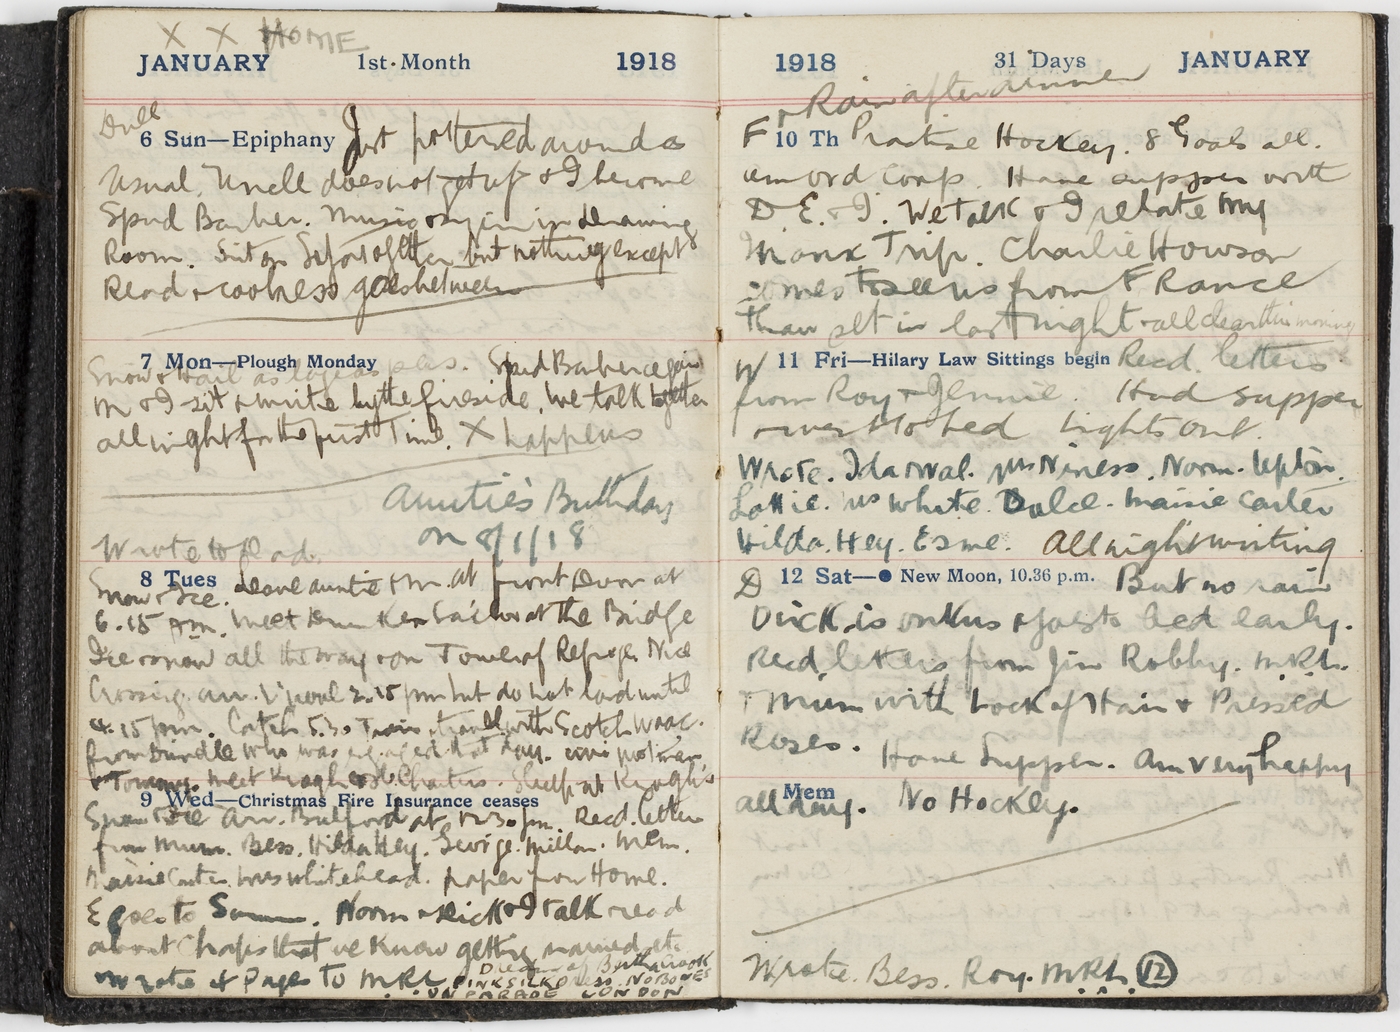 X X HOME
JANUARY 1st Month 1918
Dull
6 Sun—Epiphany Just pottered around as
usual. Uncle does not get up & I become
Spud Barber. Music in drawing
Room. Sit on Sofa together but nothing except
Read & coolness goes between
7 Mon—Plough Monday
Snow & Hail as large as peas. Spud Barber again
M & I sit & write by the fireside. We talk together
all night for the first Time. X happens
Auntie's Birthday
on 8/1/18
Wrote to Dad.
8 Tues Leave auntie & M at front Door at
Snow & Ice.
6.15 am. Meet at the Bridge
Ice & snow all the way on Tower of Refuge. Nice
Crossing. arr. L'pool 2.15 pm but do not land until
4.15 pm. Catch 5.30 Train, travel with Scotch WAAC.
from Dundee who was engaged that day.
& Tommy. Meet Keogh Charters. Sleep at Keogh's
9 Wed—Christmas Fire Insurance ceases
Snow & Ice arr. Bulford at 12.30 pm. Recd. letters
from Mum. Bess. Hilda Hey. George. Millan. Mem.
Maisie Carter. Mrs Whitehead. paper from Home.
E goes to . Norm & Dick & I talk & read
about Chaps that we know getting married etc.
Wrote 4 Pages to MRL
Dream of Bertha Crook
PINK SILK DRESS. NO BONES
ON PARADE LONDON
1918 31 Days JANUARY
& Rain after dinner
F 10 Th Practise Hockey. 8 Goals all.
am Ord Corp. Have supper with
D. E. & J. We talk & I relate my
Manx Trip. Charlie Howson
comes to see us from France
Thaw set in last night & all clear this morning
W 11 Fri—Hilary Law Sittings begin Recd. letters
from Roy & Jennie. Had supper
over to bed Lights out.
Wrote. Ida & Wal. Mrs Niness. Norm. Upton.
Lottie. Mrs White. Dulce. Maisie Carter
Hilda. Hey. Esme. All night writing
D 12 Sat—● New Moon, 10.36 p.m. But no rain
Dick is on & goes to bed early.
Recd. letters from Jim Robby. MRL.
& Mum with Lock of Hair & Pressed
Roses. Have Supper. Am very happy
Mem
all day. No Hockey.
Wrote. Bess. Roy. MRL. 12